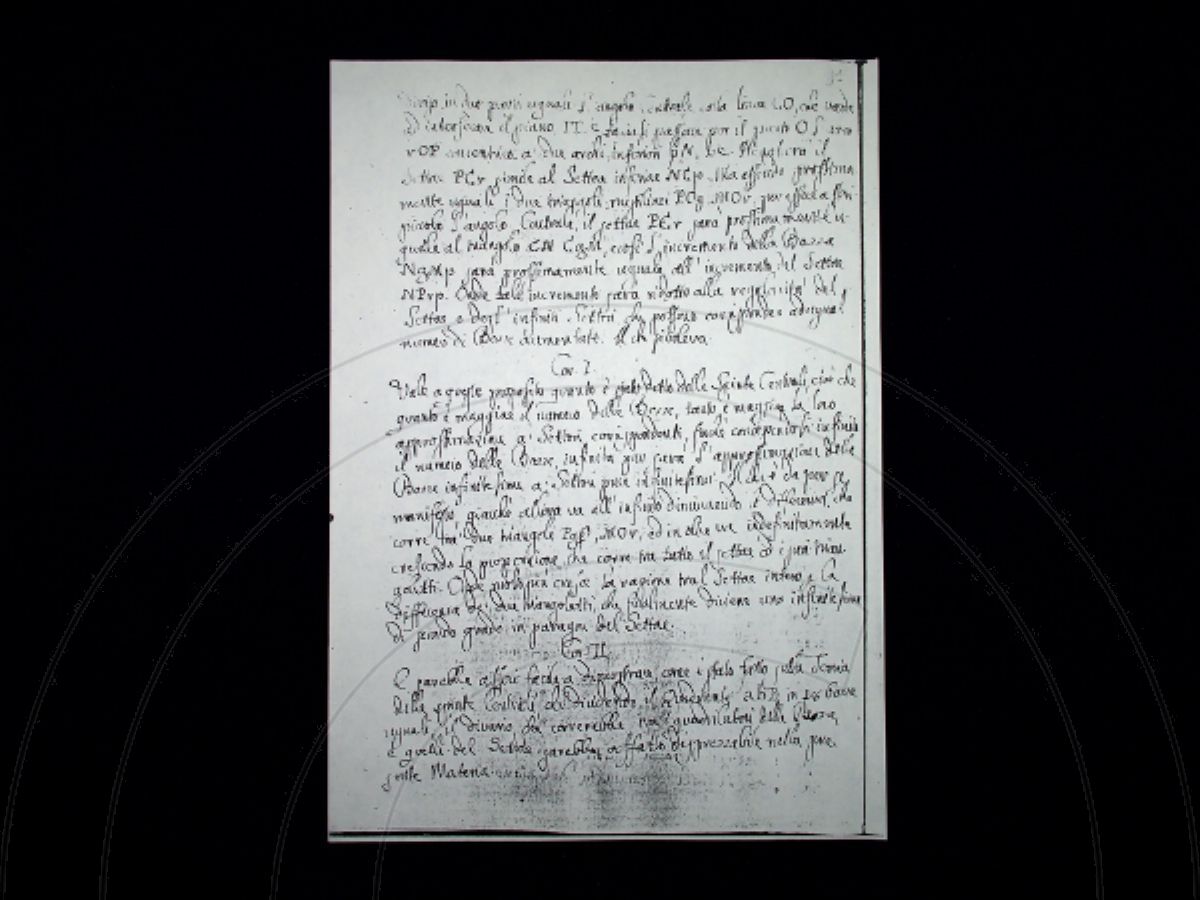 in due parti uguali l'angolo Centrale colla linea CO, che vada
ed intersecar il piano IT. e si passa per il punto O l'arco
rOP concentrico a' due archi inferiori pN,
Settore PCr simile al Settore inferiore NCp. Ma essendo prossima
mente uguali i due triangoli mistilinei POg, MOr, per essere assai
piccolo l'angolo Centrale, il settore PCr sarà prossimamente u-
guale al triangolo CgM, così l'incremento della Basse
NgMp sarà prossimamente uguale all'incremento del Settore
NPrp. Onde tale incremento sarà ridotto alla del
Settore e degl'infiniti Settori che possono corrispondere ad egual
numero di Basse aumentate. Il che
Cor. I.
Vale a questo proposito quanto è stato detto delle Spinte Centrali, cioè che
quanto è maggiore il numero delle Basse, tanto è maggiore la loro
approssimazione a' Settori corrispondenti, sinché concependosi infinito
il numero delle Basse, infinita pur sarà l'approssimazione delle
Basse infinitesime a' Settori pure infinitesimi. Il che è da per se
manifesto, giacché allora va all'infinito diminuendo la differenza, che
corre tra' due triangoli PgO, MOr, ed in oltre va indefinitamente
crescendo la proporzione, che corre tra tutto il settore ed i suoi trian
goletti. Onde molto più cresce la ragione tra l'Settore intero e la
differenza de' due triangoletti, che finalmente diviene uno infinitesimo
di secondo grado in paragon del Settore.
Cor. II.
E sarebbe assai facile a dimostrare, come è stato fatto sulla Teoria
delle spinte Centrali che dividendo il Quadrante AB in 18 Basse
uguali, il divario, che correrebbe tra' quadrilateri delle Basse,
e quelli del Settore sarebbe affatto disprezzabile nella pre
sente Materia.